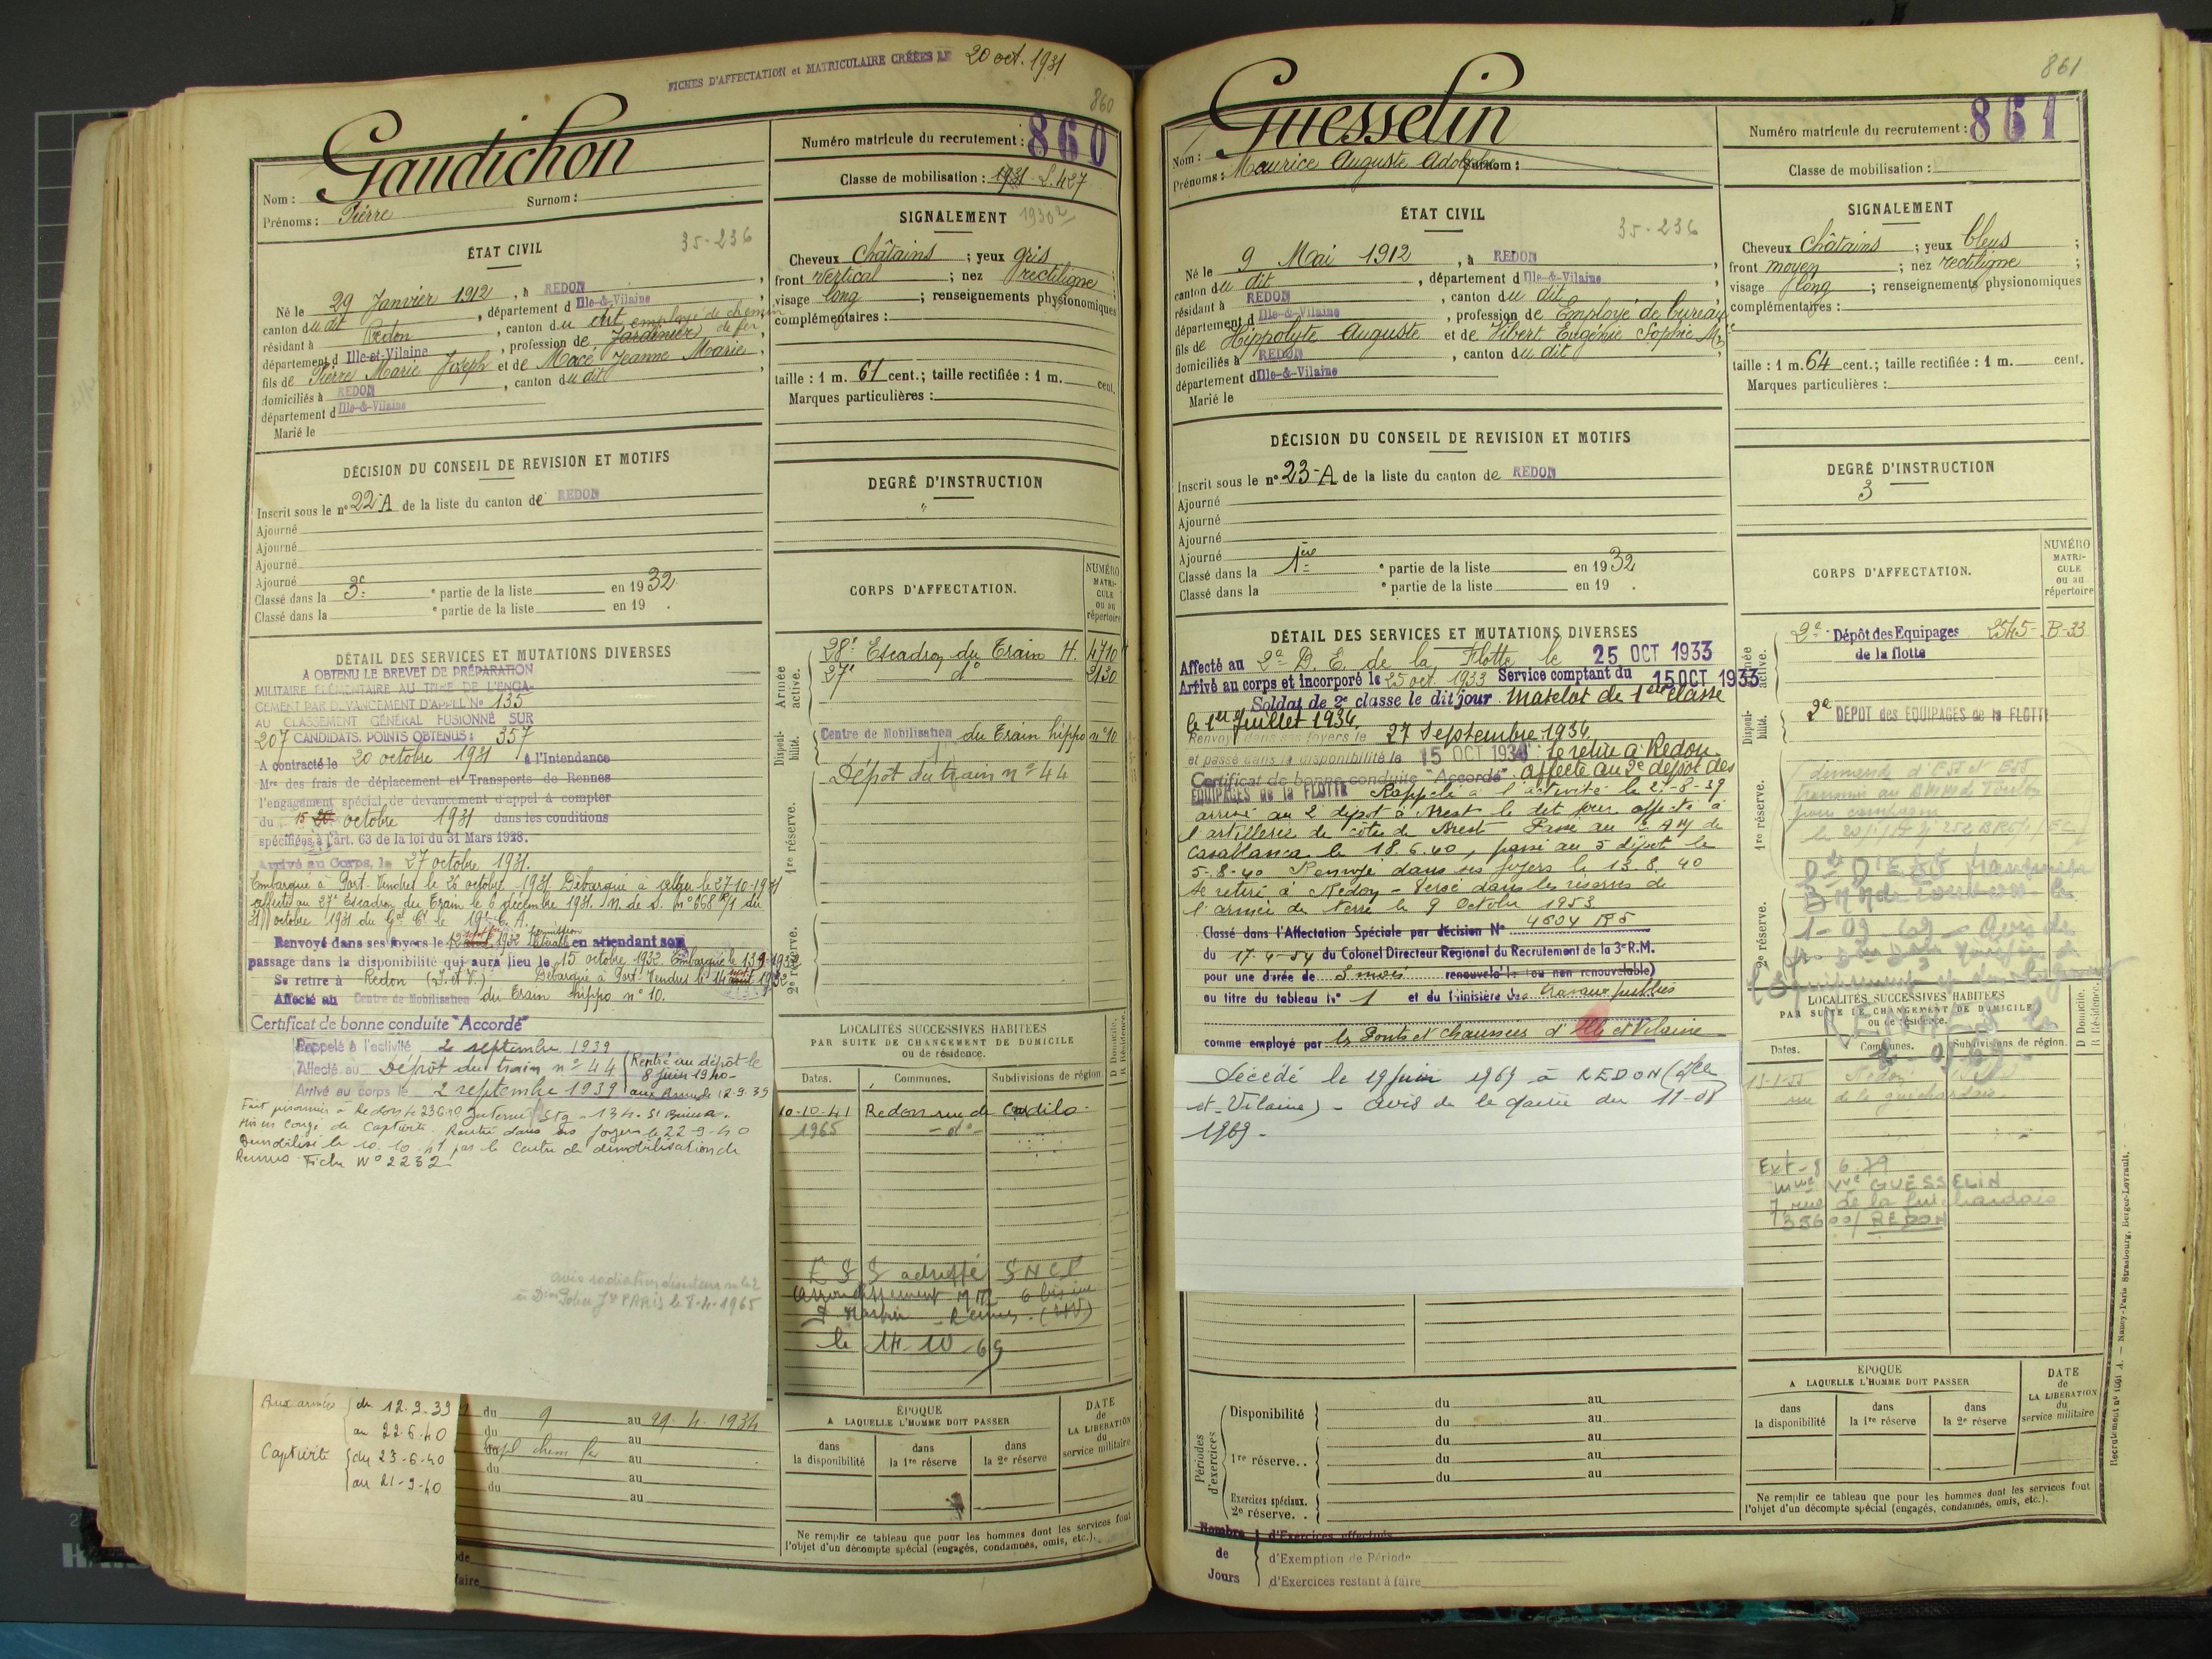 FICHES D'AFFECTATION et MATRICULAIRE CRÉÉES LE 20 oct. 1931
860
Gaudichon
Nom :
Prénoms : Pierre Surnom :
Numéro matricule du recrutement : 860
Classe de mobilisation : 1931
ÉTAT CIVIL
35-236
Né le 29 Janvier 1912, à REDON,
canton du dit, département d Ille-&-Vilaine
résidant à Redon, canton du dit employé de chemin de fer
département d Ille-et-Vilaine, profession de Jardinier,
fils de Pierre Marie Joseph et de Macé Jeanne Marie,
domiciliés à REDON, canton du dit,
département d Ille-&-Vilaine
Marié le
SIGNALEMENT
Cheveux châtains ; yeux gris ;
front vertical ; nez rectiligne ;
visage long ; renseignements physionomiques
complémentaires :
taille : 1 m. 61 cent.; taille rectifiée : 1 m. cent.
Marques particulières :
DÉCISION DU CONSEIL DE REVISION ET MOTIFS
Inscrit sous le n° 22-A de la liste du canton de REDON
Ajourné
Ajourné
Ajourné
Ajourné
Classé dans la 3e ° partie de la liste en 1932.
Classé dans la ° partie de la liste en 19 .
DEGRÉ D'INSTRUCTION
CORPS D'AFFECTATION.
NUMÉRO MATRICULE ou au répertoire
Armée active.
28e Escadron du Train H. 4710
27e do 2130
Disponibilité.
Centre de Mobilisation du Train hippo n° 10
1re réserve.
Dépôt du train n° 44
2e réserve.
DÉTAIL DES SERVICES ET MUTATIONS DIVERSES
A OBTENU LE BREVET DE PRÉPARATION
MILITAIRE ÉLÉMENTAIRE AU TITRE DE L'ENGA-
GEMENT PAR DEVANCEMENT D'APPEL N° 135
AU CLASSEMENT GÉNÉRAL FUSIONNÉ SUR
207 CANDIDATS. POINTS OBTENUS : 357
A contracté le 20 octobre 1931 à l'Intendance
Mre des frais de déplacement et Transports de Rennes
l'engagement spécial de devancement d'appel à compter
du 15 octobre 1931 dans les conditions
spécifiées à l'art. 63 de la loi du 31 Mars 1928.
Arrivé au Corps, le 27 octobre 1931.
Embarqué à Port-Vendres le 26 octobre 1931. Débarqué à Alger le 27-10-1931
affecté au 27e Escadron du Train le 6 décembre 1931.
31 octobre 1931 du Gal Ct le 19e C. A.
Renvoyé dans ses foyers le 1932 en attendant son
passage dans la disponibilité qui aura lieu le 15 octobre 1932.
Se retire à Redon (I.-et-V.) Débarqué à Port-Vendres le 14 1932
Affecté au Centre de Mobilisation du Train hippo n° 10.
Certificat de bonne conduite "Accordé"
Rappelé à l'activité 2 septembre 1939
Affecté au Dépôt du train n° 44 Rentré au dépôt le 8 juin 1940
Arrivé au corps le 2 septembre 1939 aux Armées le 12.9.39
Fait prisonnier à Redon le 23.6.40 Interné
Mis en congé de Captivité. Rentré dans ses foyers le 22-9-40
Démobilisé le 10-10-41 par le Centre de démobilisation de
Rennes. Fiche N° 2232
Aux armées du 12.9.39
au 22.6.40
Captivité du 23-6-40
au 21-9-40
du 9 au 29.4.1934
du au
du au
du au
du au
LOCALITÉS SUCCESSIVES HABITÉES
PAR SUITE DE CHANGEMENT DE DOMICILE
ou de résidence.
D Domicile. R Résidence.
Dates. Communes. Subdivisions de région.
10-10-41 Redon rue de
1965 - do -
adressé SNCF
le 14-10-69
ÉPOQUE
A LAQUELLE L'HOMME DOIT PASSER
dans la disponibilité
dans la 1re réserve
dans la 2e réserve
DATE de LA LIBÉRATION du service militaire
Ne remplir ce tableau que pour les hommes dont les services font
l'objet d'un décompte spécial (engagés, condamnés, omis, etc.).
861
Guesselin
Nom :
Prénoms : Maurice Auguste Adolphe Surnom :
Numéro matricule du recrutement : 861
Classe de mobilisation :
ÉTAT CIVIL
35-236
Né le 9 Mai 1912, à REDON,
canton du dit, département d Ille-&-Vilaine
résidant à REDON, canton du dit
département d Ille-&-Vilaine, profession de Employé de bureau
fils de Hippolyte Auguste et de Hibert Eugénie Sophie Mie
domiciliés à REDON, canton du dit,
département d Ille-&-Vilaine
Marié le
SIGNALEMENT
Cheveux châtains ; yeux bleus ;
front moyen ; nez rectiligne ;
visage long ; renseignements physionomiques
complémentaires :
taille : 1 m. 64 cent.; taille rectifiée : 1 m. cent.
Marques particulières :
DÉCISION DU CONSEIL DE REVISION ET MOTIFS
Inscrit sous le n° 23-A de la liste du canton de REDON
Ajourné
Ajourné
Ajourné
Ajourné
Classé dans la 1ère ° partie de la liste en 1932
Classé dans la ° partie de la liste en 19 .
DEGRÉ D'INSTRUCTION
3
CORPS D'AFFECTATION.
NUMÉRO MATRICULE ou au répertoire
Armée active.
2e Dépôt des Equipages 2545- B-33
de la flotte
Disponibilité.
2e DEPOT des EQUIPAGES de la FLOTTE
1re réserve.
2e réserve.
DÉTAIL DES SERVICES ET MUTATIONS DIVERSES
Affecté au 2e D. E. de la Flotte le 25 OCT 1933
Arrivé au corps et incorporé le 25 oct. 1933 Service comptant du 15 OCT 1933
Soldat de 2e classe le dit jour Matelot de 1ère classe
le 1er Juillet 1934.
Renvoyé dans ses foyers le 27 Septembre 1934
et passé dans la disponibilité le 15 OCT 1934 Se retire à Redon.
Certificat de bonne conduite "Accordé" affecté au 2e dépôt des
EQUIPAGES de la FLOTTE Rappelé à l'activité le 2-8-39
arrivé au 2 dépôt à Brest le dit jour affecté à
l'artillerie de côte de Brest - Passé au
Casablanca le 18.6.40, passé au 5 dépôt le
5-8-40 Renvoyé dans ses foyers le 13.8.40
Se retire à Redon - Versé dans les réserves de
l'armée de terre le 9 Octobre 1953
Classé dans l'Affectation Spéciale par décision N° 4604 RS
du 17-4-54 du Colonel Directeur Régional du Recrutement de la 3e R.M.
pour une durée de mois renouvelable (ou non renouvelable)
au titre du tableau N° 1 et du Ministère des travaux publics
comme employé par les Ponts et chaussées d'Ille et Vilaine
Décédé le 19 juin 1969 à REDON (Ille
et-Vilaine) - avis de la Mairie du 11-08
1969 -
LOCALITÉS SUCCESSIVES HABITÉES
PAR SUITE DE CHANGEMENT DE DOMICILE
ou de résidence.
D Domicile. R Résidence.
Dates. Communes. Subdivisions de région.
Redon
rue de la guichardais.
Ext - 8 6.79
Mme Vve GUESSELIN
7, rue de la Guichardais
35600 REDON
Périodes d'exercices
Disponibilité du au
du au
1re réserve.. du au
du au
du au
Exercices spéciaux.
2e réserve. .
Nombre d'Exercices effectués
de d'Exemption de Période
Jours d'Exercices restant à faire
ÉPOQUE
A LAQUELLE L'HOMME DOIT PASSER
dans la disponibilité
dans la 1re réserve
dans la 2e réserve
DATE de LA LIBÉRATION du service militaire
Ne remplir ce tableau que pour les hommes dont les services font
l'objet d'un décompte spécial (engagés, condamnés, omis, etc.).
Recrutement n° 1001 A. — Nancy-Paris Strasbourg, Berger-Levrault.